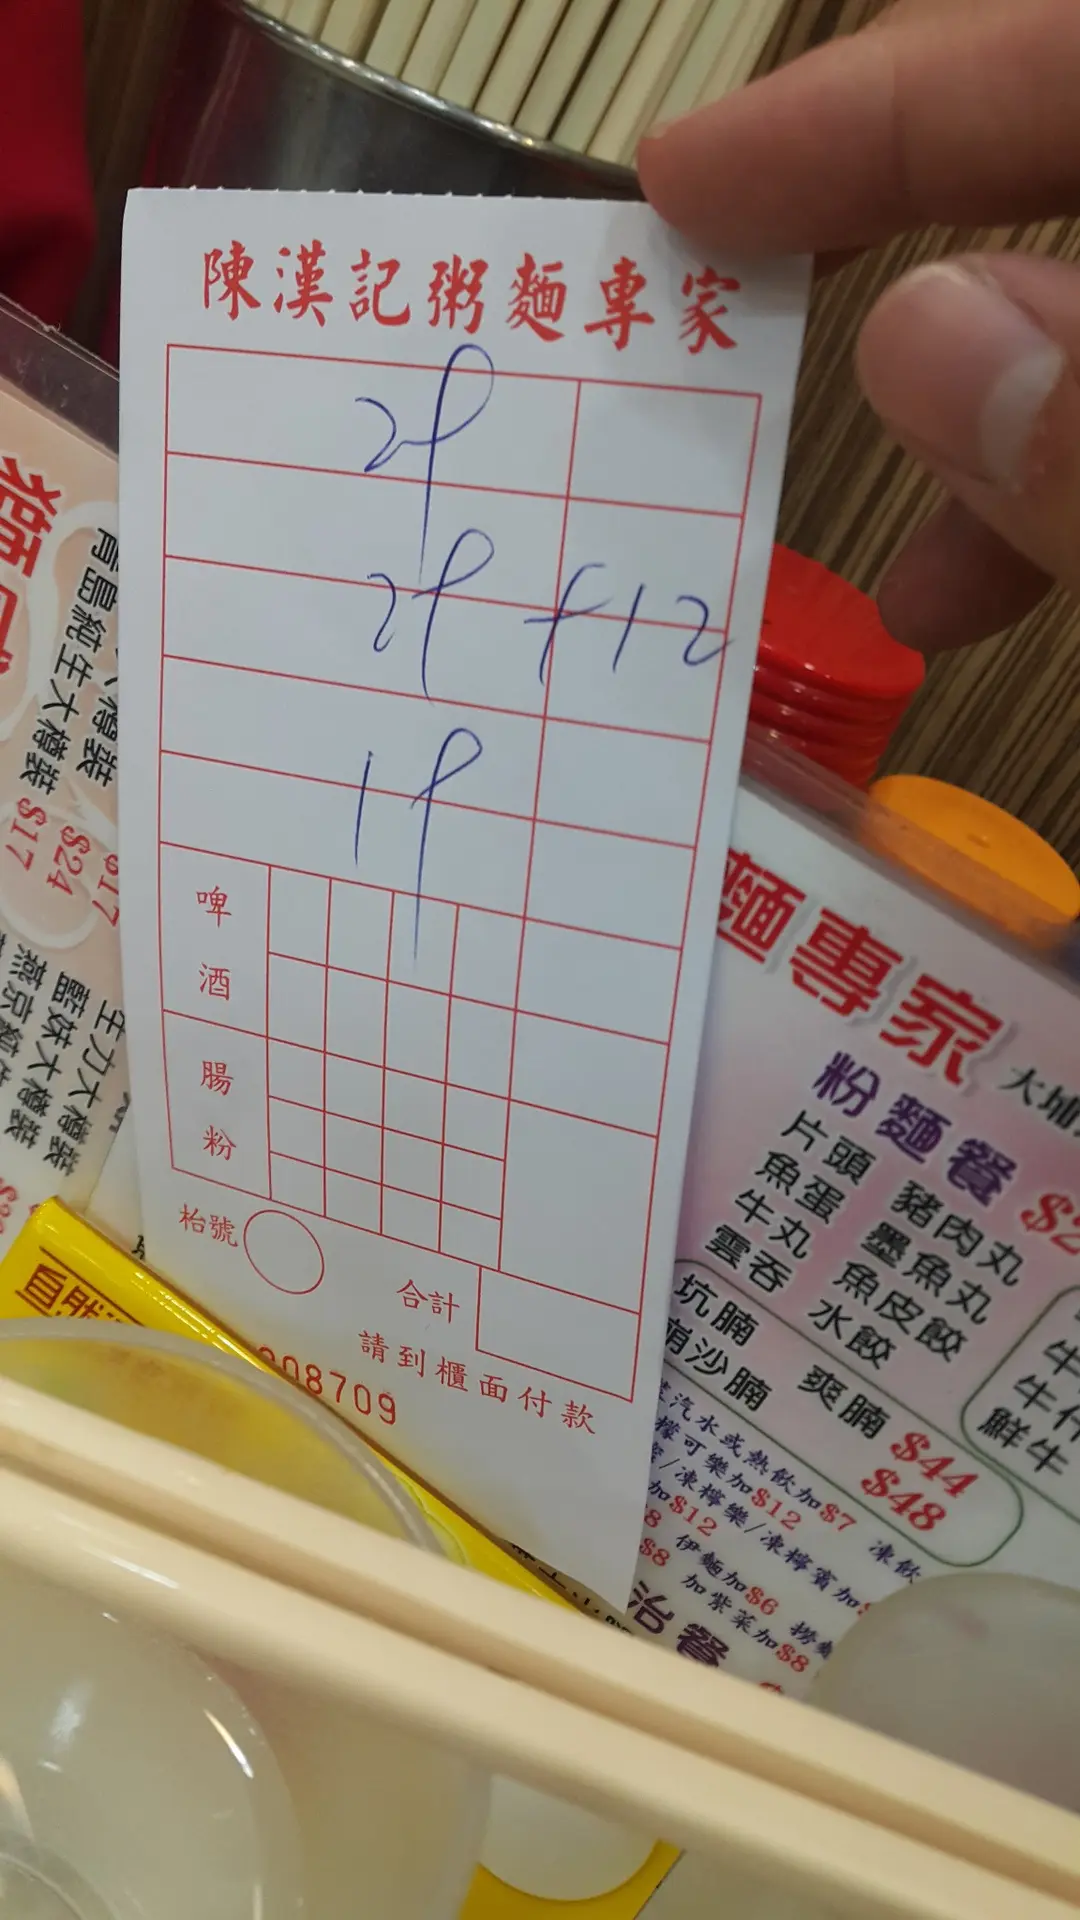 陳漢記粥麵專家
2P
2P +12
1P
啤酒
腸粉
枱號
合計
請到櫃面付款
08709
青島純生大樽裝
$17
$24
$17
生力大樽裝
藍妹大樽裝
麵專家
大埔
粉麵餐
片頭 豬肉丸
魚蛋 墨魚丸
牛丸 魚皮餃
雲吞 水餃
坑腩 爽腩 $44
崩沙腩 $48
汽水或熱飲加$7 凍飲
檬可樂加$12
/凍檸樂/凍檸賓加
加$12
$8 伊麵加$6
加紫菜加$8
治餐